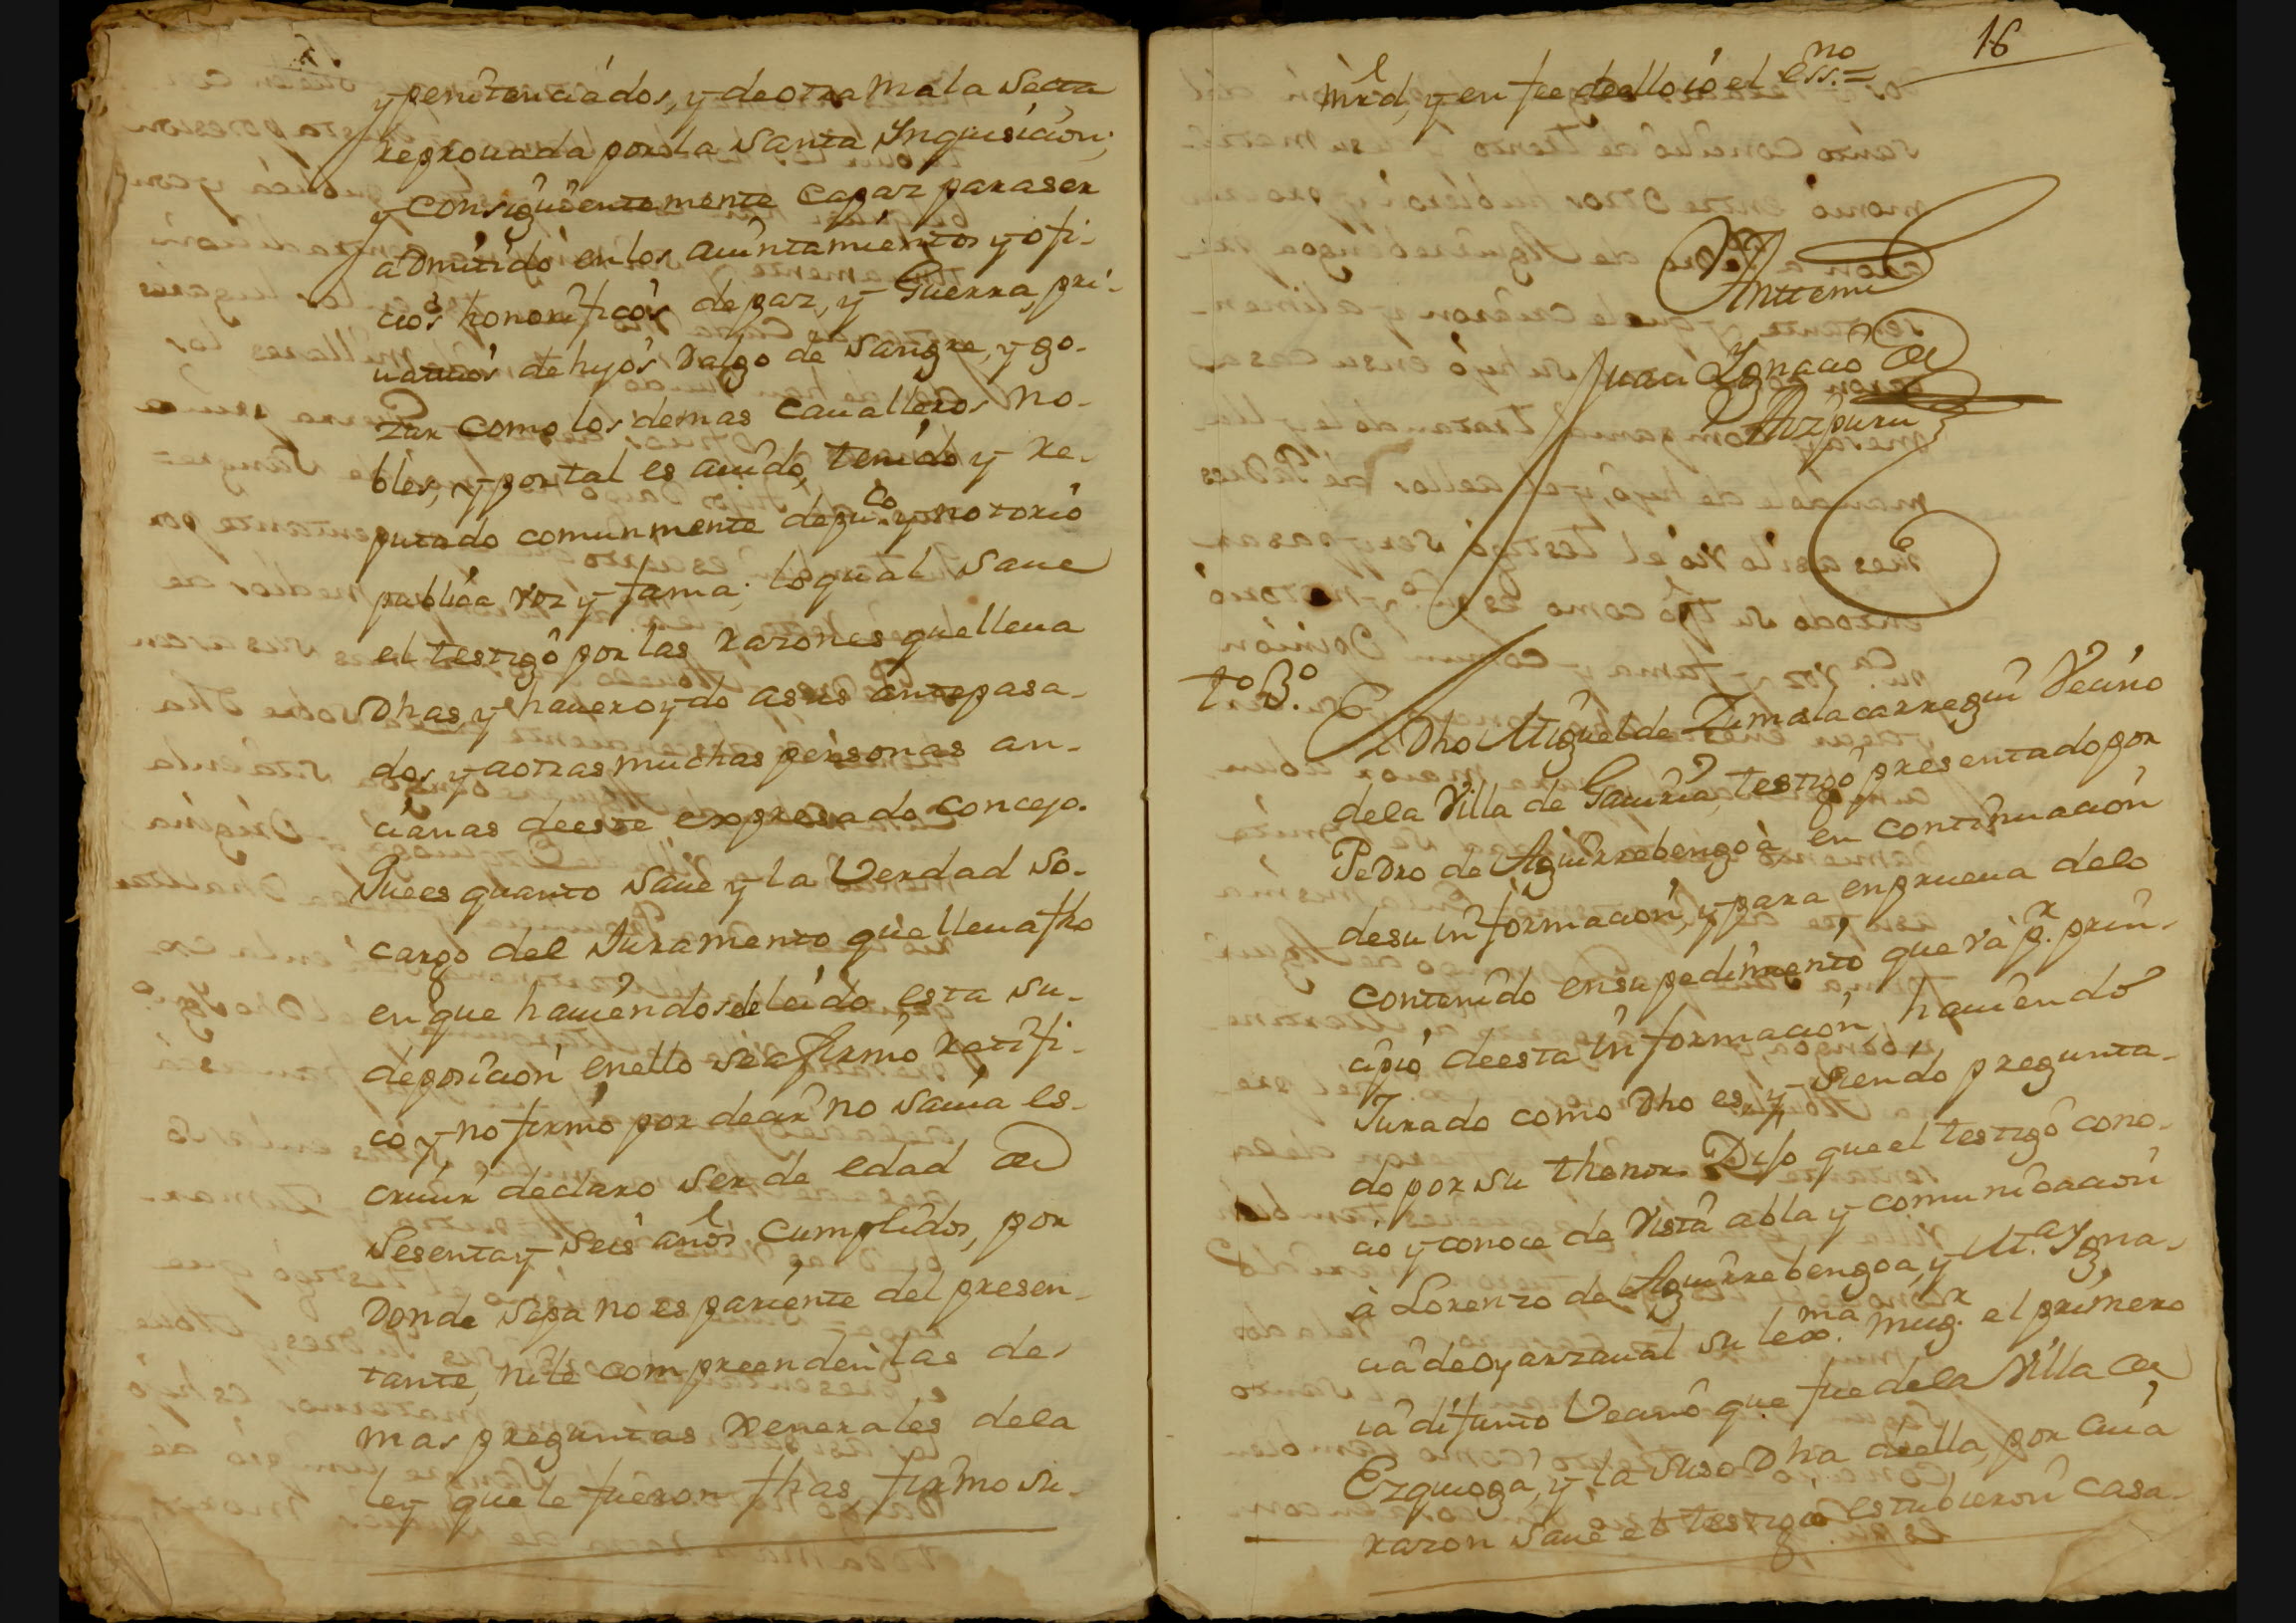 y penitenciados, y de otra mala secta
reprouada por la Santa Ynquisicion;
y consiguientemente capaz para ser
admitido en los auintamientos y ofi-
cios honorificos de paz, y Guerra pri-
uatiuos de hijos Dalgo de sangre, y go-
zar como los demas Caualleros No-
bles, y por tal es auido, tenido y re-
putado comunmente de pu.co y notorio
publica voz y fama; lo qual saue
el testigo por las razones que lleua
Dhas, y hauer oydo a sus antepasa-
dos y a otras muchas personas an-
cianas de este expresado concejo.
Que es quanto saue y la Verdad so-
cargo del Juramento que lleua fho
en que hauiendosele leido esta su
deposicion en ello se afirmo ratifi-
co y no firmo por decir no sauia es-
criuir declaro ser de edad de
Sesenta y Seis años Cumplidos, por
Donde sepa no es pariente del presen-
tante, ni le compreenden las de-
mas preguntas Xenerales de la
ley que le fueron fhas, firmo su
16
mrd, y en fee de ello io el ess.no =
Anttemi
Juan Ygnacio de
Aizpuru
t.o 3.o
El Dho Miguel de Zumalacarregui Vecino
de la Villa de Gauiria, testigo presentado por
Pedro de Aguirrebengoa, en continuacion
de su informacion, y para en prueua de lo
contenido en su pedimento que va p.r prin-
cipio de esta informacion, hauiendo
Jurado como Dho es, y siendo pregunta-
do por su thenor. Dijo que el testigo cono-
cio y conoce de vista abla y comunicacion
à Lorenzo de Aguirrebengoa, y M.a Ygna-
cia de Oyarzaual su lex.ma mug.r el primero
ia difunto Vecino que fue de la Villa de
Ezquioga, y la suso Dha de ella, por cuia
razon saue el testigo estubieron casa-